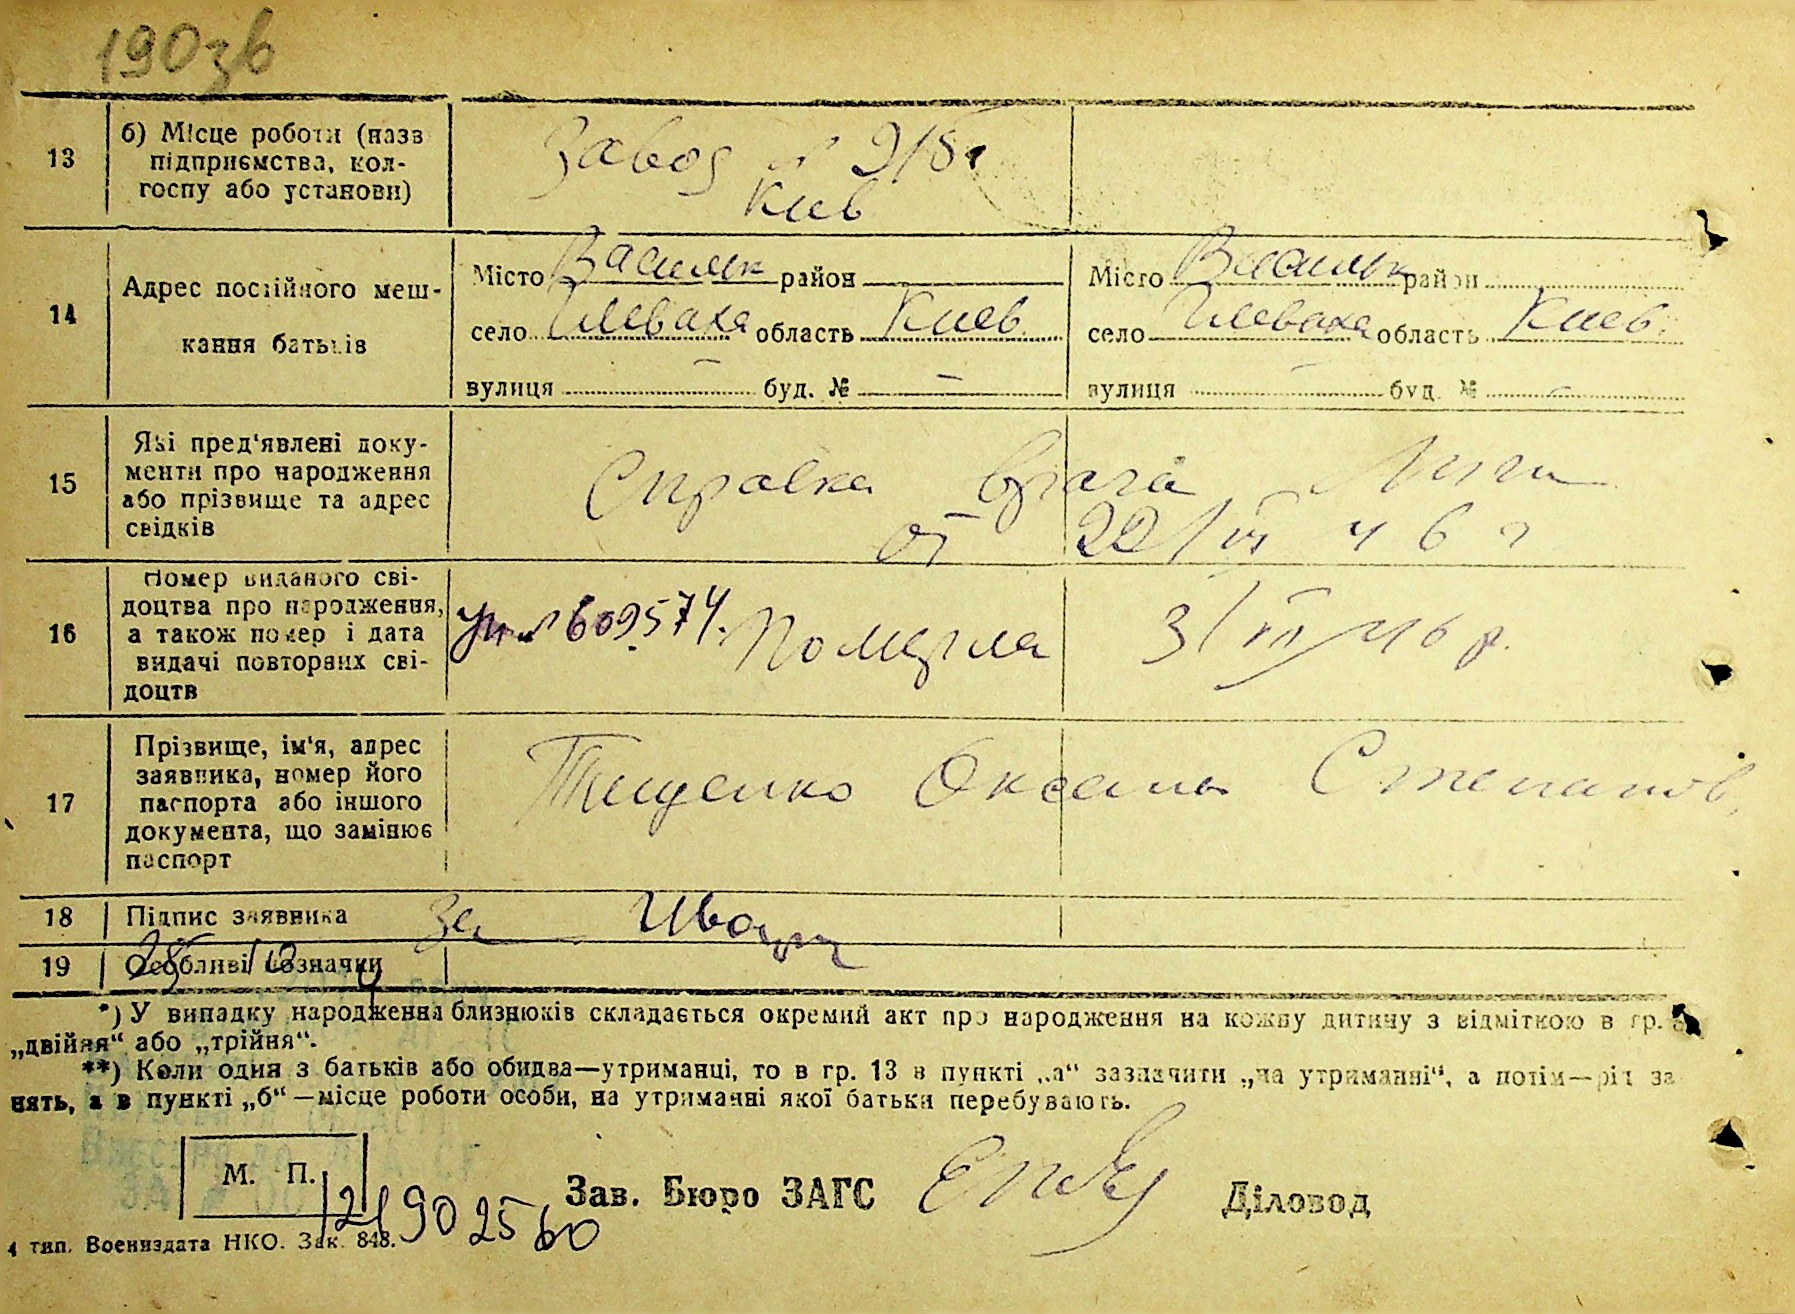 190зв
13
б) Місце роботи (назв
підприємства, кол-
госпу або установи)
Завод №
Киев
14
Адрес постійного меш-
кання батьків
Місто Васильк район
село Глеваха область Киев
вулиця – буд. № –
Місто Васильк район
село Глеваха область Киев.
вулиця – буд. № –
15
Які пред'явлені доку-
менти про народження
або прізвище та адрес
свідків
Справка врача
от 22/VI 46 г
16
Номер виданого сві-
доцтва про народження,
а також номер і дата
видачі повторних сві-
доцтв
№ 609574. Померла 3/VII/46 р.
17
Прізвище, ім'я, адрес
заявника, номер його
паспорта або іншого
документа, що замінює
паспорт
Тищенко Оксана Степанов.
18
Підпис заявника
за
19
Особливі позначки
*) У випадку народження близнюків складається окремий акт про народження на кожну дитину з відміткою в гр.
„двійня“ або „трійня“.
**) Коли один з батьків або обидва—утриманці, то в гр. 13 в пункті „а“ зазначити „на утриманні“, а потім—рід за
нять, а в пункті „б“—місце роботи особи, на утриманні якої батьки перебувають.
М. П.
Зав. Бюро ЗАГС
Діловод
4 тип. Воениздата НКО. Зак. 848.